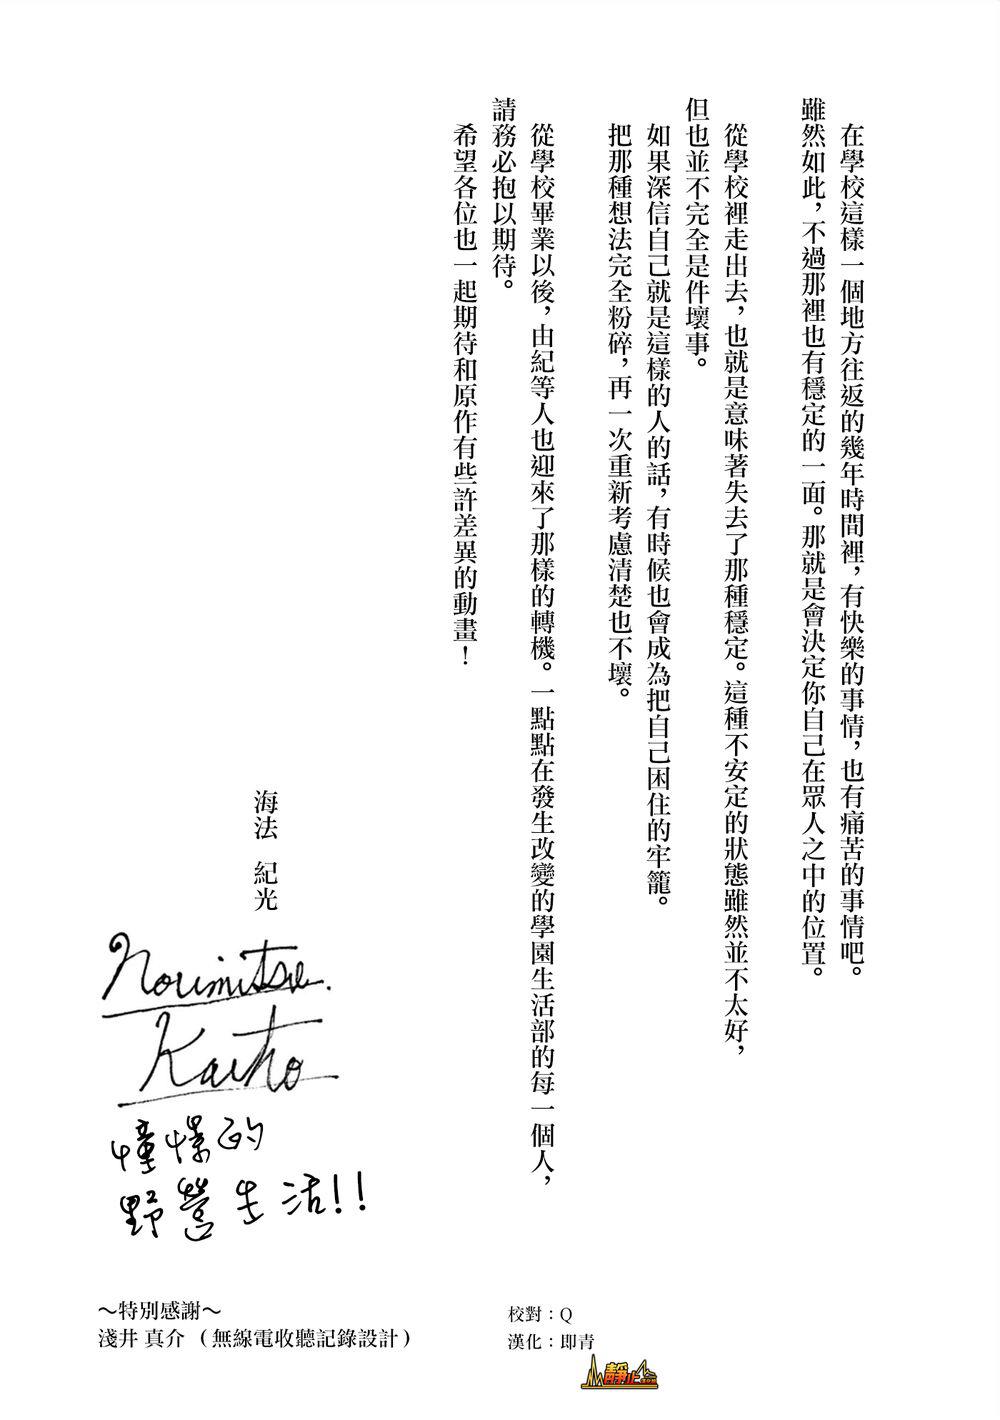 在學校這樣一個地方往返的幾年時間裡，有快樂的事情，也有痛苦的事情吧。
雖然如此，不過那裡也有穩定的一面。那就是會決定你自己在眾人之中的位置。
從學校裡走出去，也就是意味著失去了那種穩定。這種不安定的狀態雖然並不太好，
但也並不完全是件壞事。
如果深信自己就是這樣的人的話，有時候也會成為把自己困住的牢籠。
把那種想法完全粉碎，再一次重新考慮清楚也不壞。
從學校畢業以後，由紀等人也迎來了那樣的轉機。一點點在發生改變的學園生活部的每一個人，
請務必抱以期待。
希望各位也一起期待和原作有些許差異的動畫！
海法 紀光
Norimitsu.
Kaiho
憧憬的
野營生活!!
～特別感謝～
淺井 真介（無線電收聽記錄設計）
校對：Q
漢化：即青
靜止